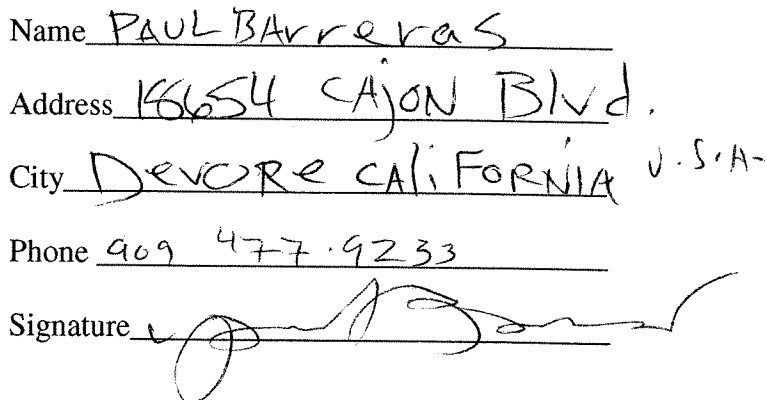 Name PAUL BArreras
Address 18654 CAjON Blvd.
City DevORe CAliFORNIA U.S.A-
Phone 909 477.9233
Signature